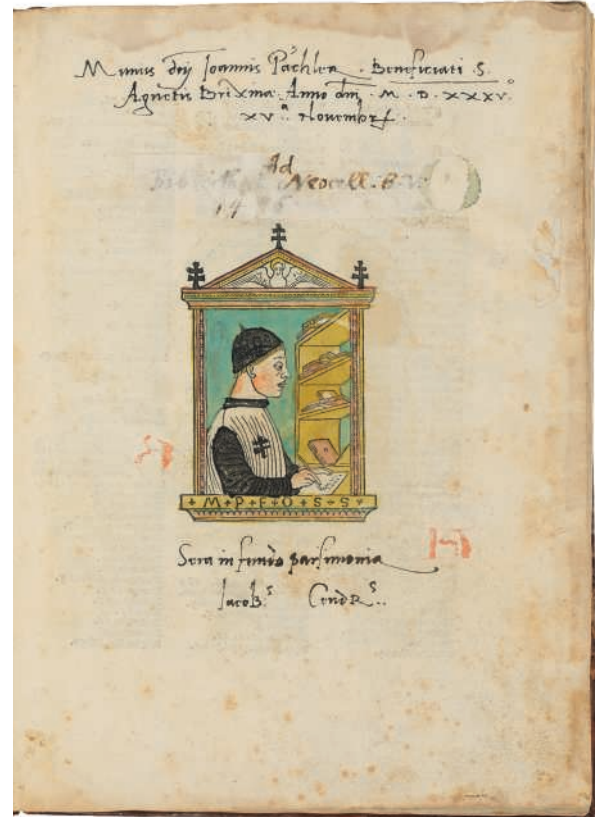 Munus dñj Joannis Pächler . Beneficiati . S.
Agnetis Brixinæ. Anno dñi . M . D . XXXV.º
XV.ª Novembr̃.
Ad
Neocell. B. V.
+ M + P + F + O + S + S +
Sera in fundo parsimonia
Jacob.s